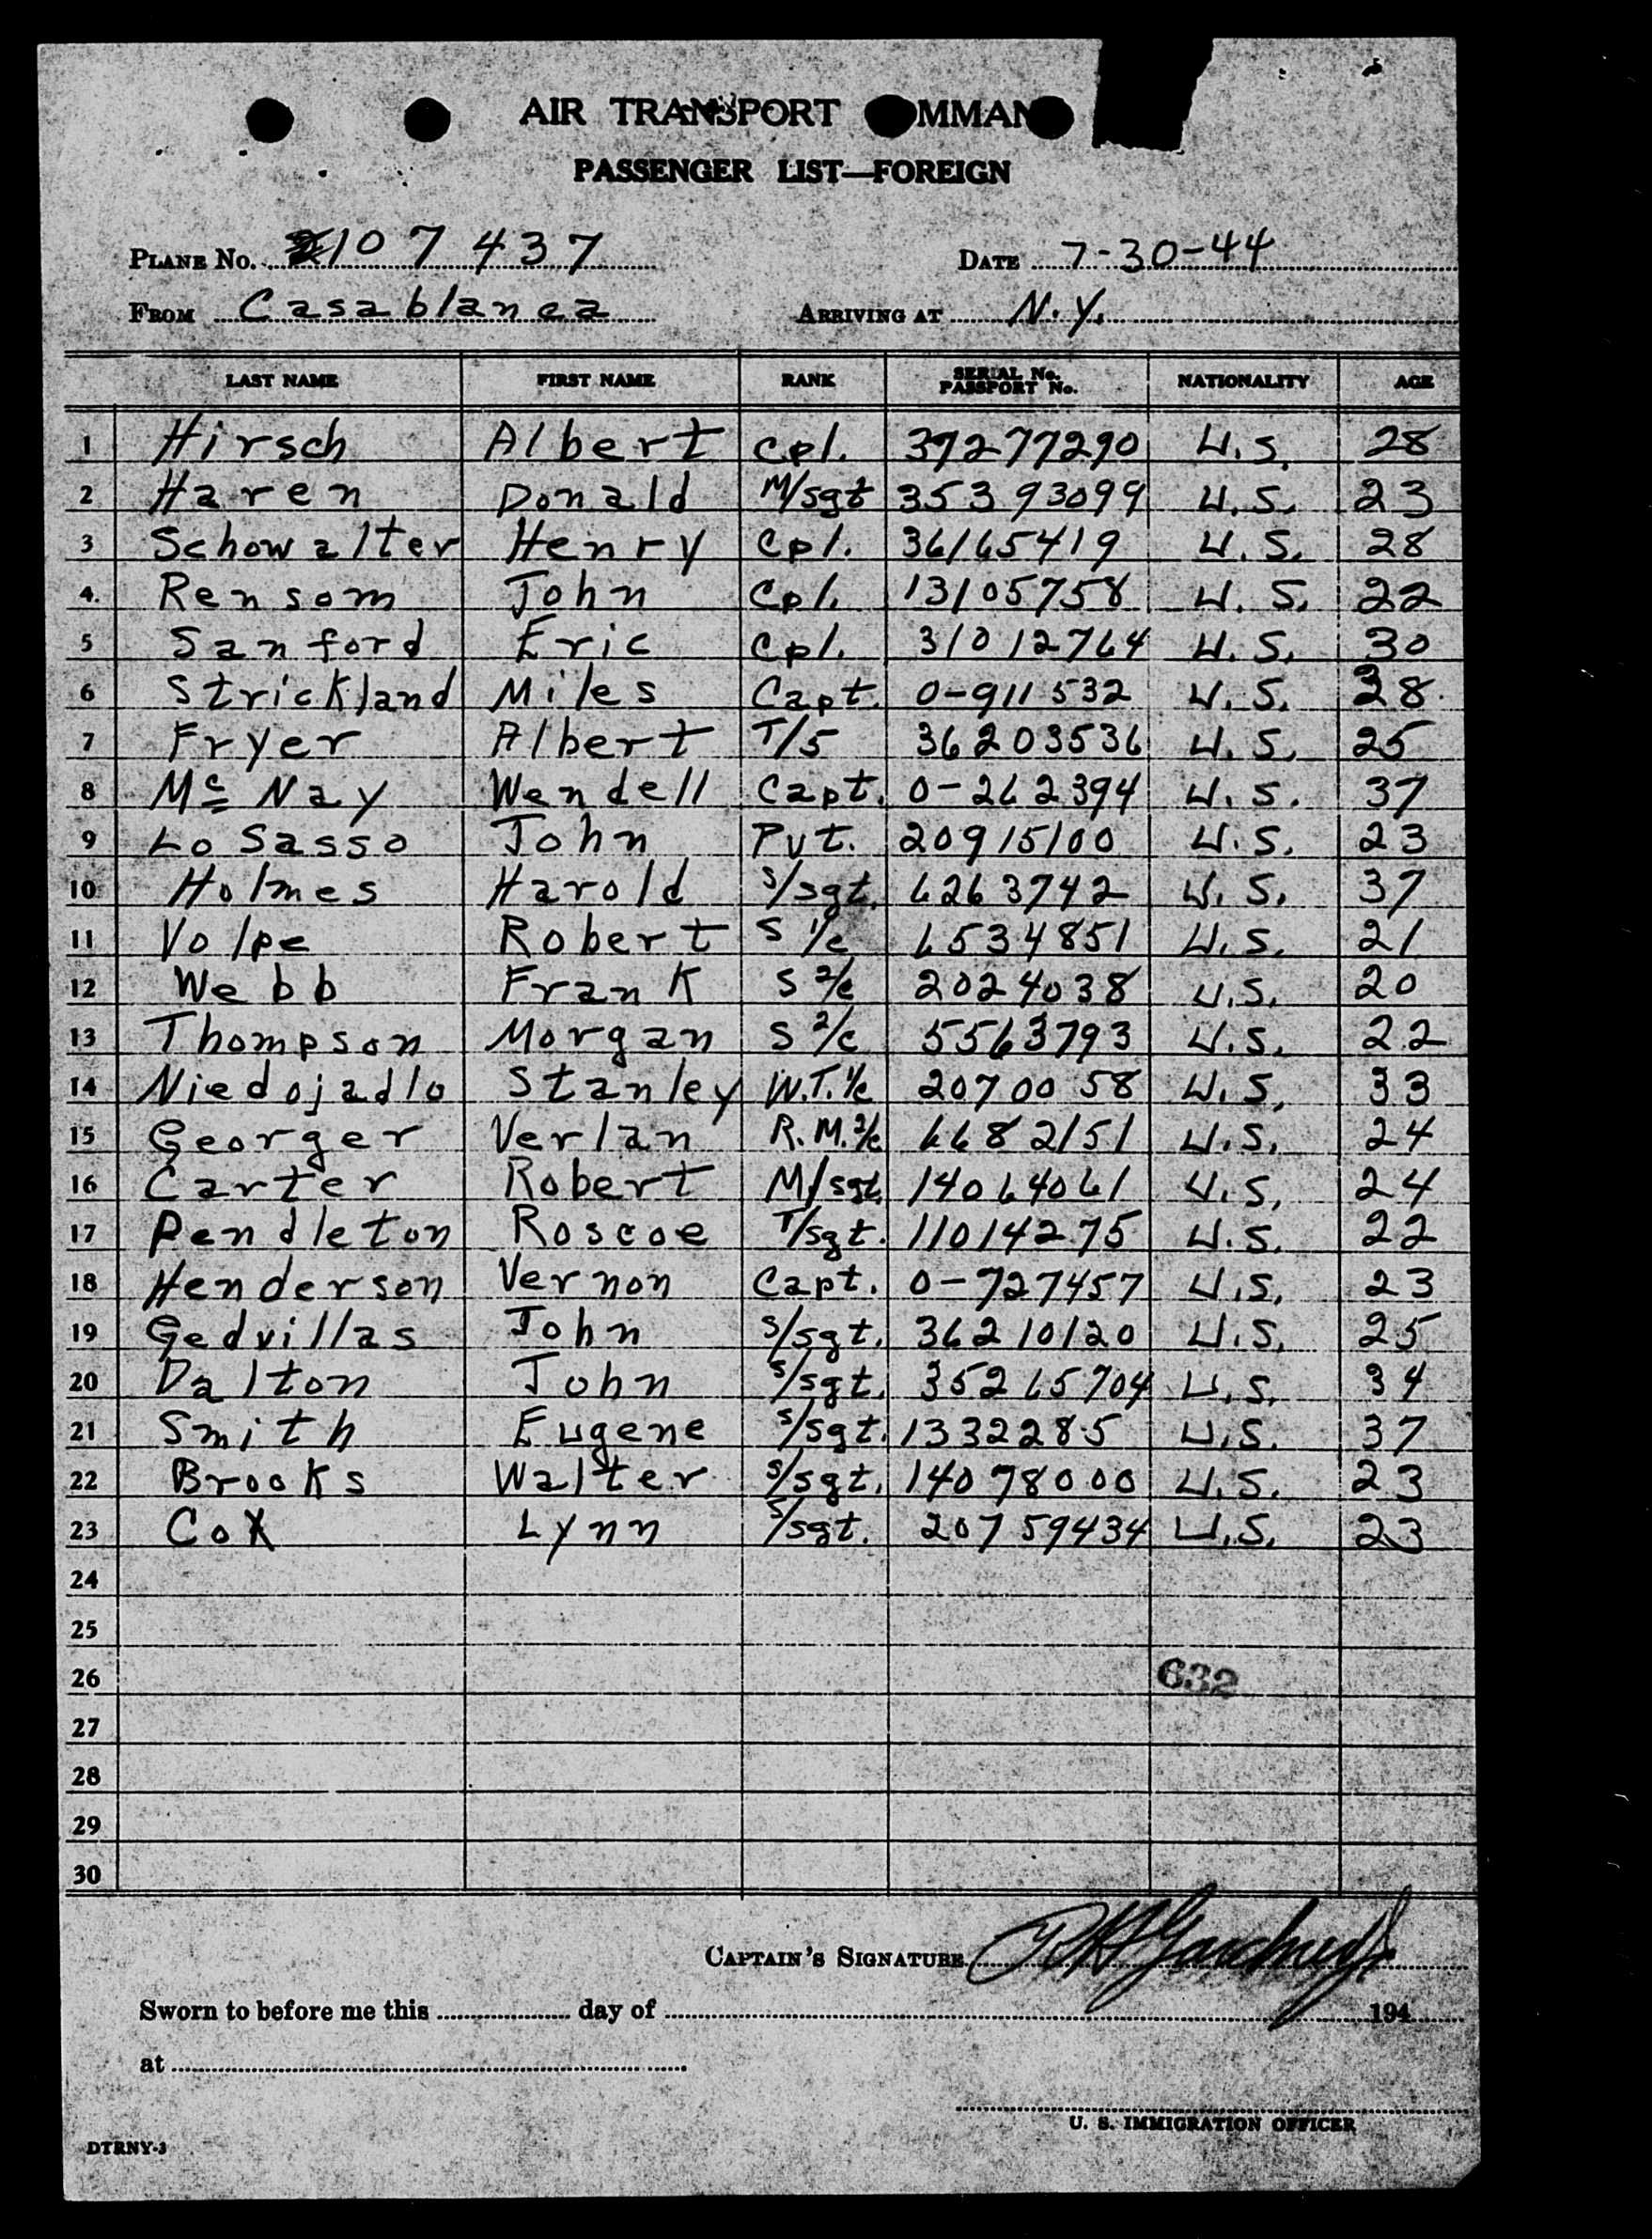 AIR TRANSPORT COMMAND
PASSENGER LIST—FOREIGN
PLANE No. 107437 DATE 7-30-44
FROM Casablanca ARRIVING AT N.Y.
LAST NAME FIRST NAME RANK SERIAL No. PASSPORT No. NATIONALITY AGE
1 Hirsch Albert Cpl. 37277290 U.S. 28
2 Haren Donald M/sgt 35393099 U.S. 23
3 Schowalter Henry Cpl. 36165419 U.S. 28
4. Rensom John Cpl. 13105758 U.S. 22
5 Sanford Eric Cpl. 31012764 U.S. 30
6 Strickland Miles Capt. 0-911532 U.S. 38
7 Fryer Albert T/5 36203536 U.S. 25
8 Mc Nay Wendell Capt. 0-262394 U.S. 37
9 Lo Sasso John Pvt. 20915100 U.S. 23
10 Holmes Harold S/sgt. 6263742 U.S. 37
11 Volpe Robert S 1/c 6534851 U.S. 21
12 Webb Frank S 2/c 2024038 U.S. 20
13 Thompson Morgan S 2/c 5563793 U.S. 22
14 Niedojadlo Stanley W.T. 1/c 2070058 U.S. 33
15 Georger Verlan R.M. 2/c 6682151 U.S. 24
16 Carter Robert M/sgt. 14064061 U.S. 24
17 Pendleton Roscoe T/sgt. 11014275 U.S. 22
18 Henderson Vernon Capt. 0-727457 U.S. 23
19 Gedvillas John S/sgt. 36210120 U.S. 25
20 Dalton John S/sgt. 35265704 U.S. 34
21 Smith Eugene S/sgt. 13322285 U.S. 37
22 Brooks Walter S/sgt. 14078000 U.S. 23
23 Cox Lynn S/sgt. 20759434 U.S. 23
24
25
26 632
27
28
29
30
CAPTAIN'S SIGNATURE
Sworn to before me this day of 194
at
U. S. IMMIGRATION OFFICER
DTRNY-3